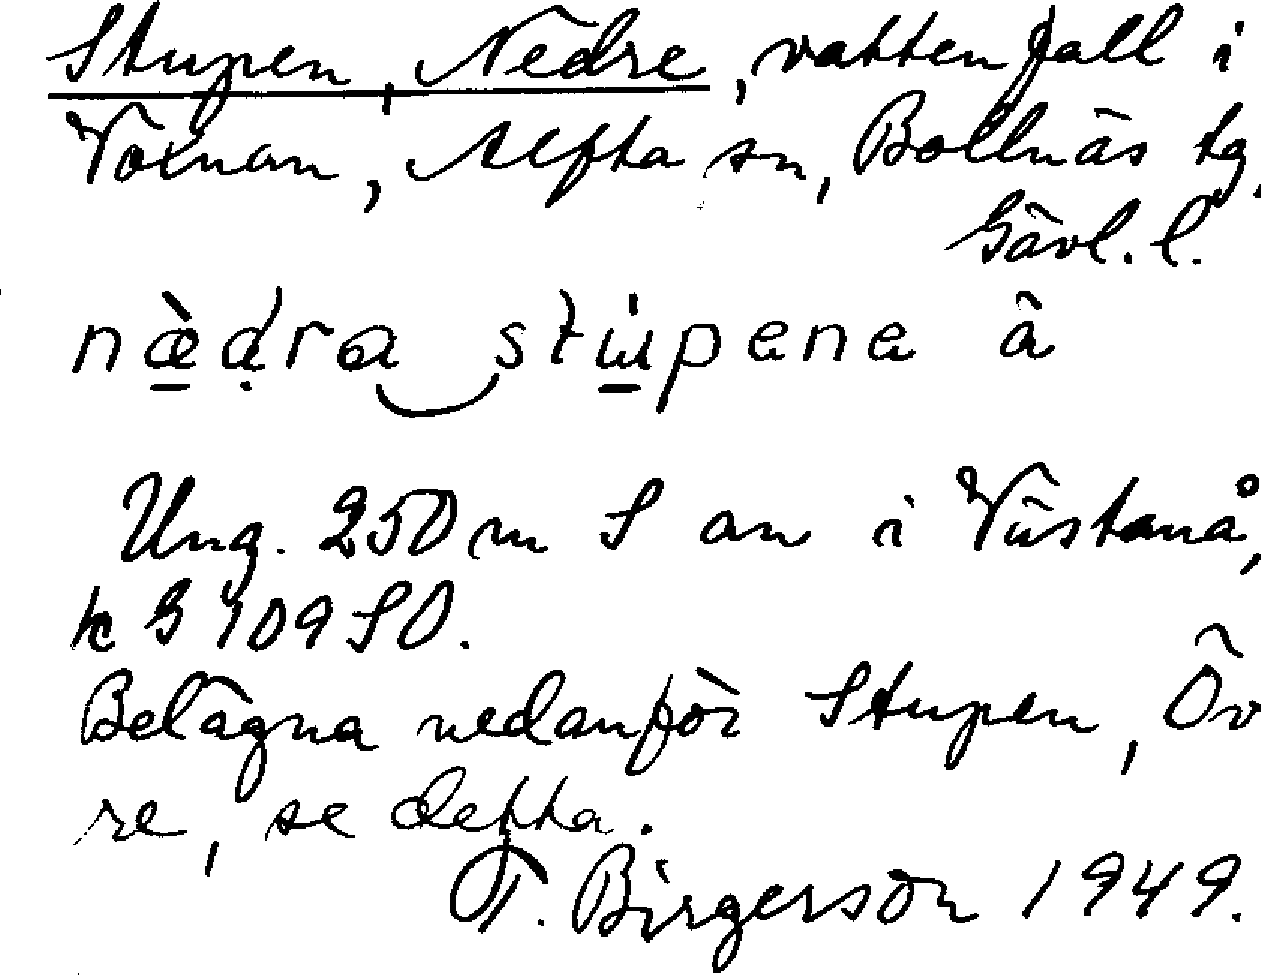 Stupen, Nedre, vattenfall i
Voxnan, Alfta sn, Bollnäs tg.
Gävl. l.
næ̀dra stupene â
Ung. 250 m S an i Västanå,
k G 109 SO.
Belägna nedanför Stupen, Öv
re, se detta.
T. Birgerson 1949.